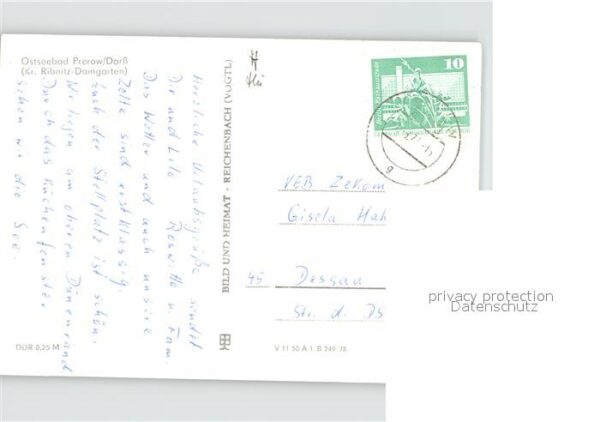 Ostseebad Prerow/Darß
(Kr. Ribnitz-Damgarten)
Herzliche Urlaubsgrüße sendet
Dir und Lilo Roswitha u. Fam.
Das Wetter und auch unsere
Zelte sind erstklassig.
Auch der Stellplatz ist schön.
Wir liegen am oberen Dünenrand
Durch das Küchenfenster
sehen wir die See.
DDR 0,25 M
BILD UND HEIMAT · REICHENBACH (VOGTL)
V 11 50 A 1 B 249/78
10
VEB Zekom
Gisela Hah
45 Dessau
Str. d. DS
privacy protection
Datenschutz